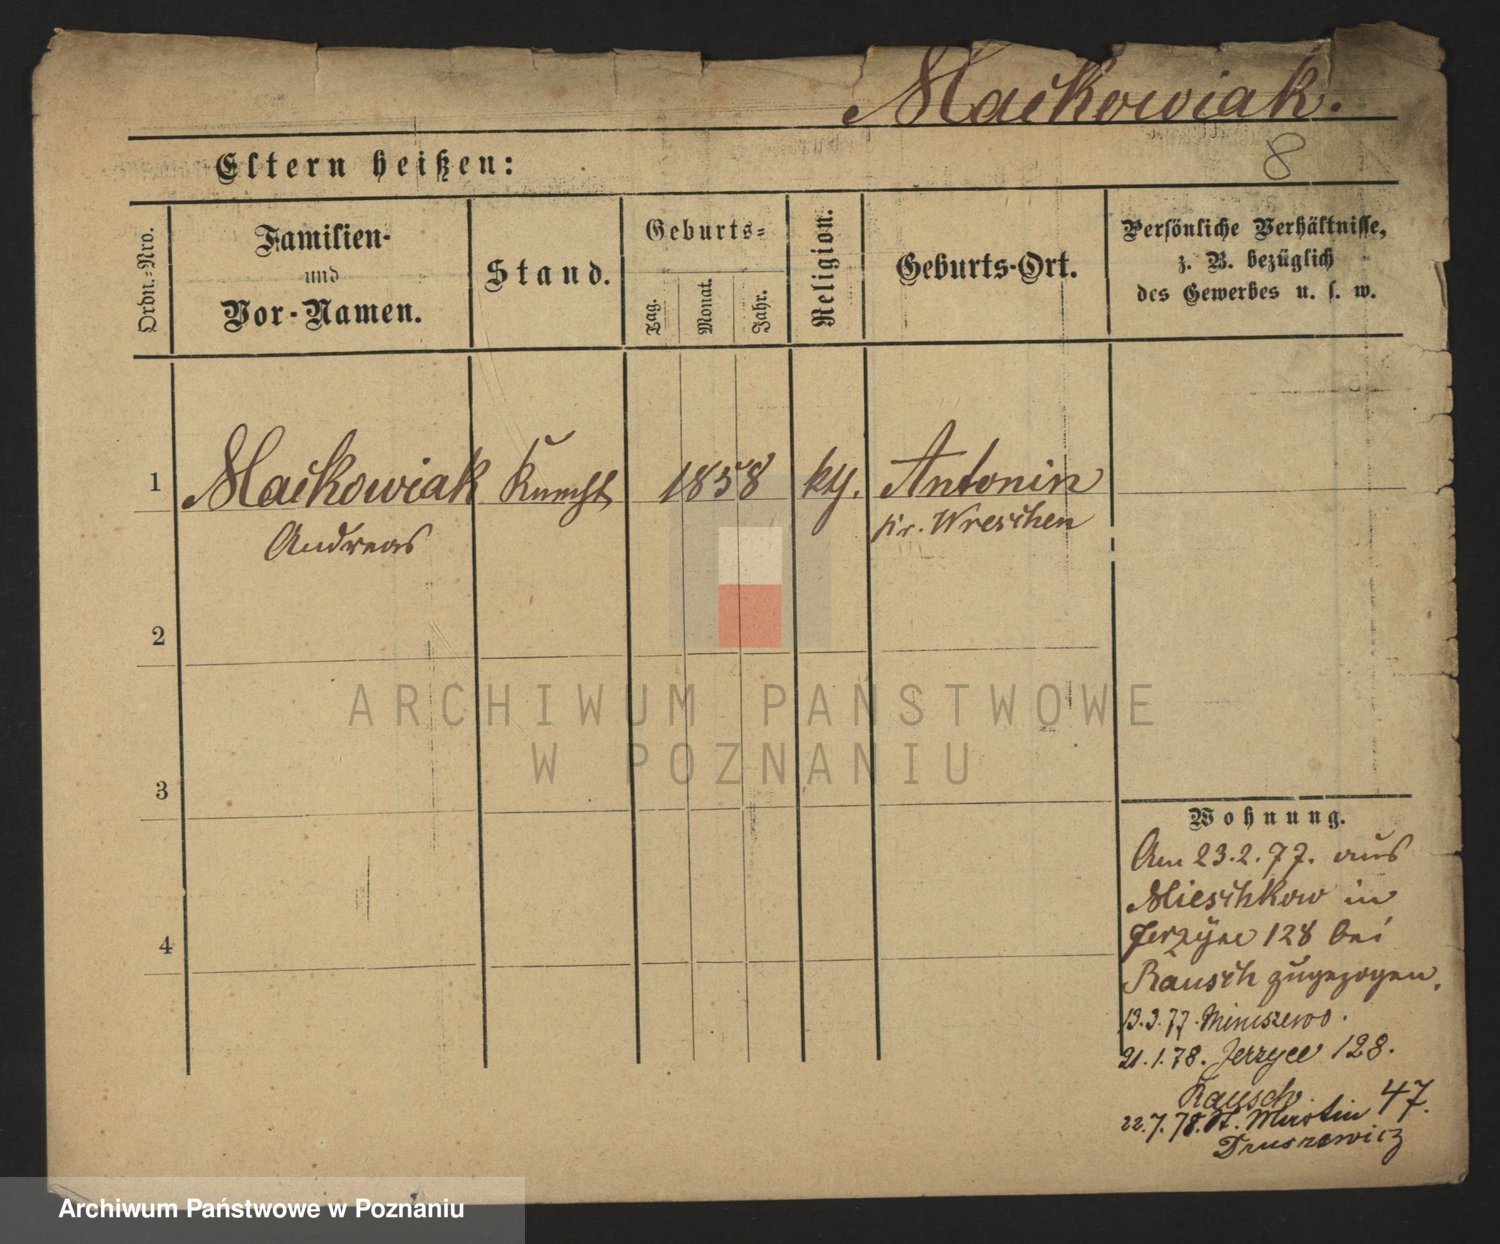 Maćkowiak.
8
Eltern heißen:
Ordn.-Nro.
Familien-
und
Vor-Namen.
Stand.
Geburts-
Tag.
Monat.
Jahr.
Religion.
Geburts-Ort.
Persönliche Verhältnisse,
z. B. bezüglich
des Gewerbes u. s. w.
1 Maćkowiak Knecht 1858 kth. Antonin
Andreas Kr. Wreschen
2
3
4
Wohnung.
Am 23.2.77. aus
Mieschkow in
Jerzyce 128 bei
Rausch zugezogen.
13.3.77.
21.1.78. Jerzyce 128.
Rausch
22.7.78. St. Martin 47.
ARCHIWUM PAŃSTWOWE
W POZNANIU
Archiwum Państwowe w Poznaniu